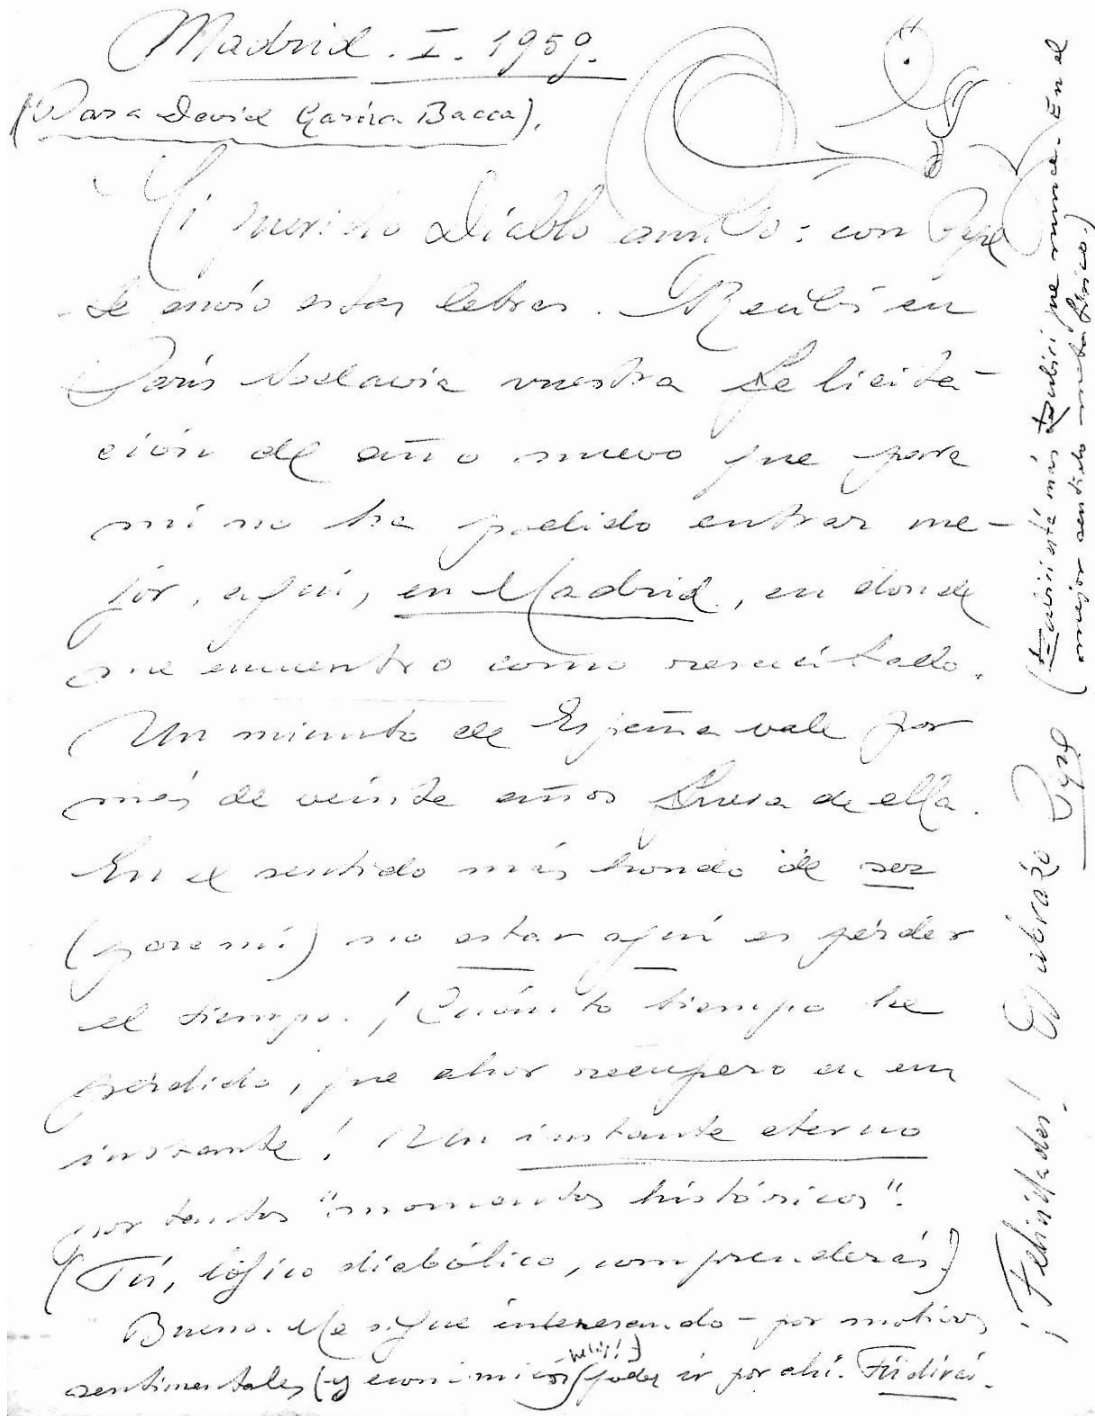 Madrid. I. 1959.
(Para David García Bacca).
Mi querido Diablo amigo: con Pepe
te envío estas letras. Recibí en
París todavía vuestra felicita-
ción de año nuevo que para
mí no ha podido entrar me-
jor, aquí, en Madrid, en donde
me encuentro como resucitado.
Un minuto de España vale por
más de veinte años fuera de ella.
En el sentido más hondo de ser
(para mí) no estar aquí es perder
el tiempo. ¡Cuánto tiempo he
perdido, que ahor recupero en un
instante! Un instante eterno
por tantos "momentos históricos".
(Tú, lógico diabólico, comprenderás.)
Bueno. Me sigue interesando - por motivos
sentimentales (y económicos) poder ir por ahí. Tú dirás.
¡Felicidades! El abrazo Pepe
está más que nunca. En el
mejor sentido metafísico.)